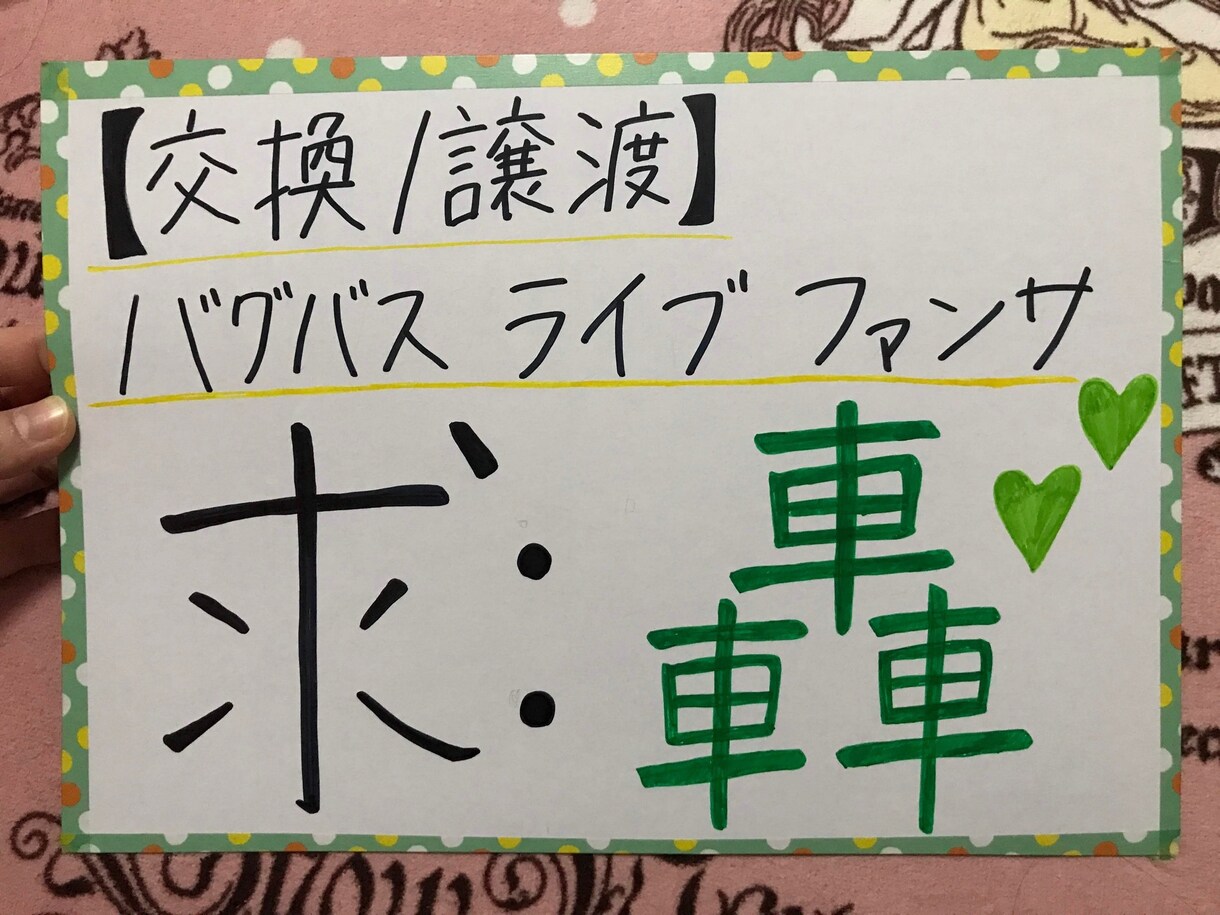 【交換/譲渡】
バグバス ライブ ファンサ
求:轟